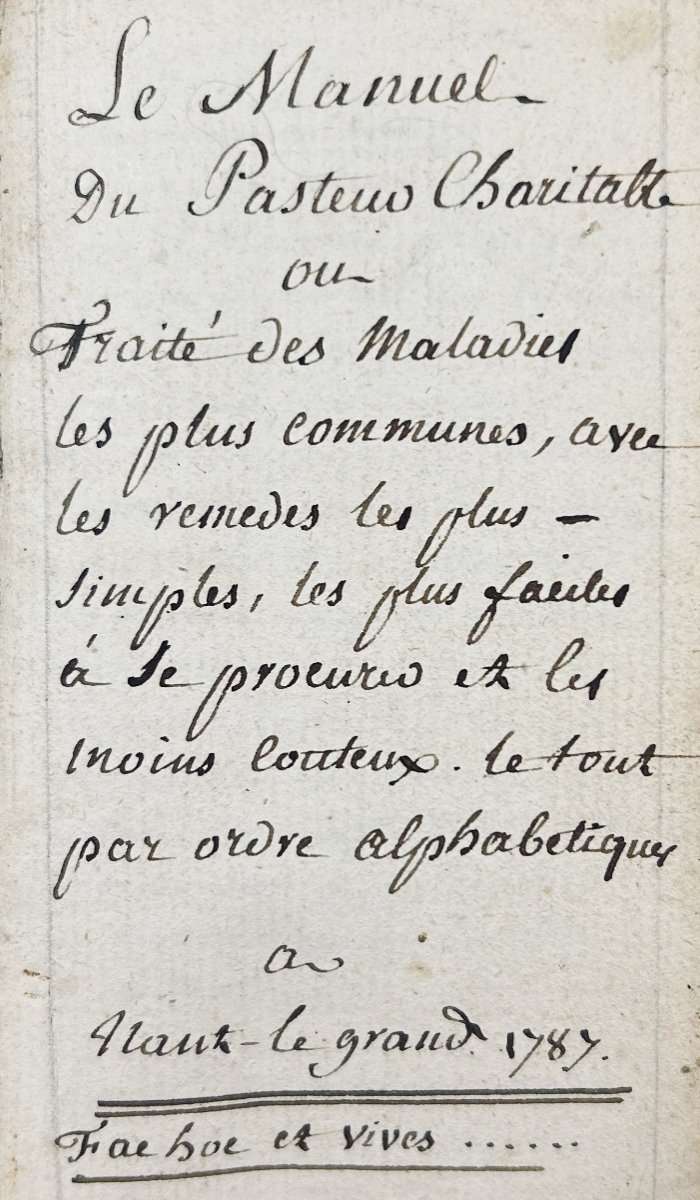 Le Manuel
Du Pasteur Charitable
ou
Traité des Maladies
les plus communes, avec
les remedes les plus –
simples, les plus faciles
à se procurer et les
moins couteux. le tout
par ordre alphabetique
a
Nant-le grand 1787.
Fac hoc et vives ......